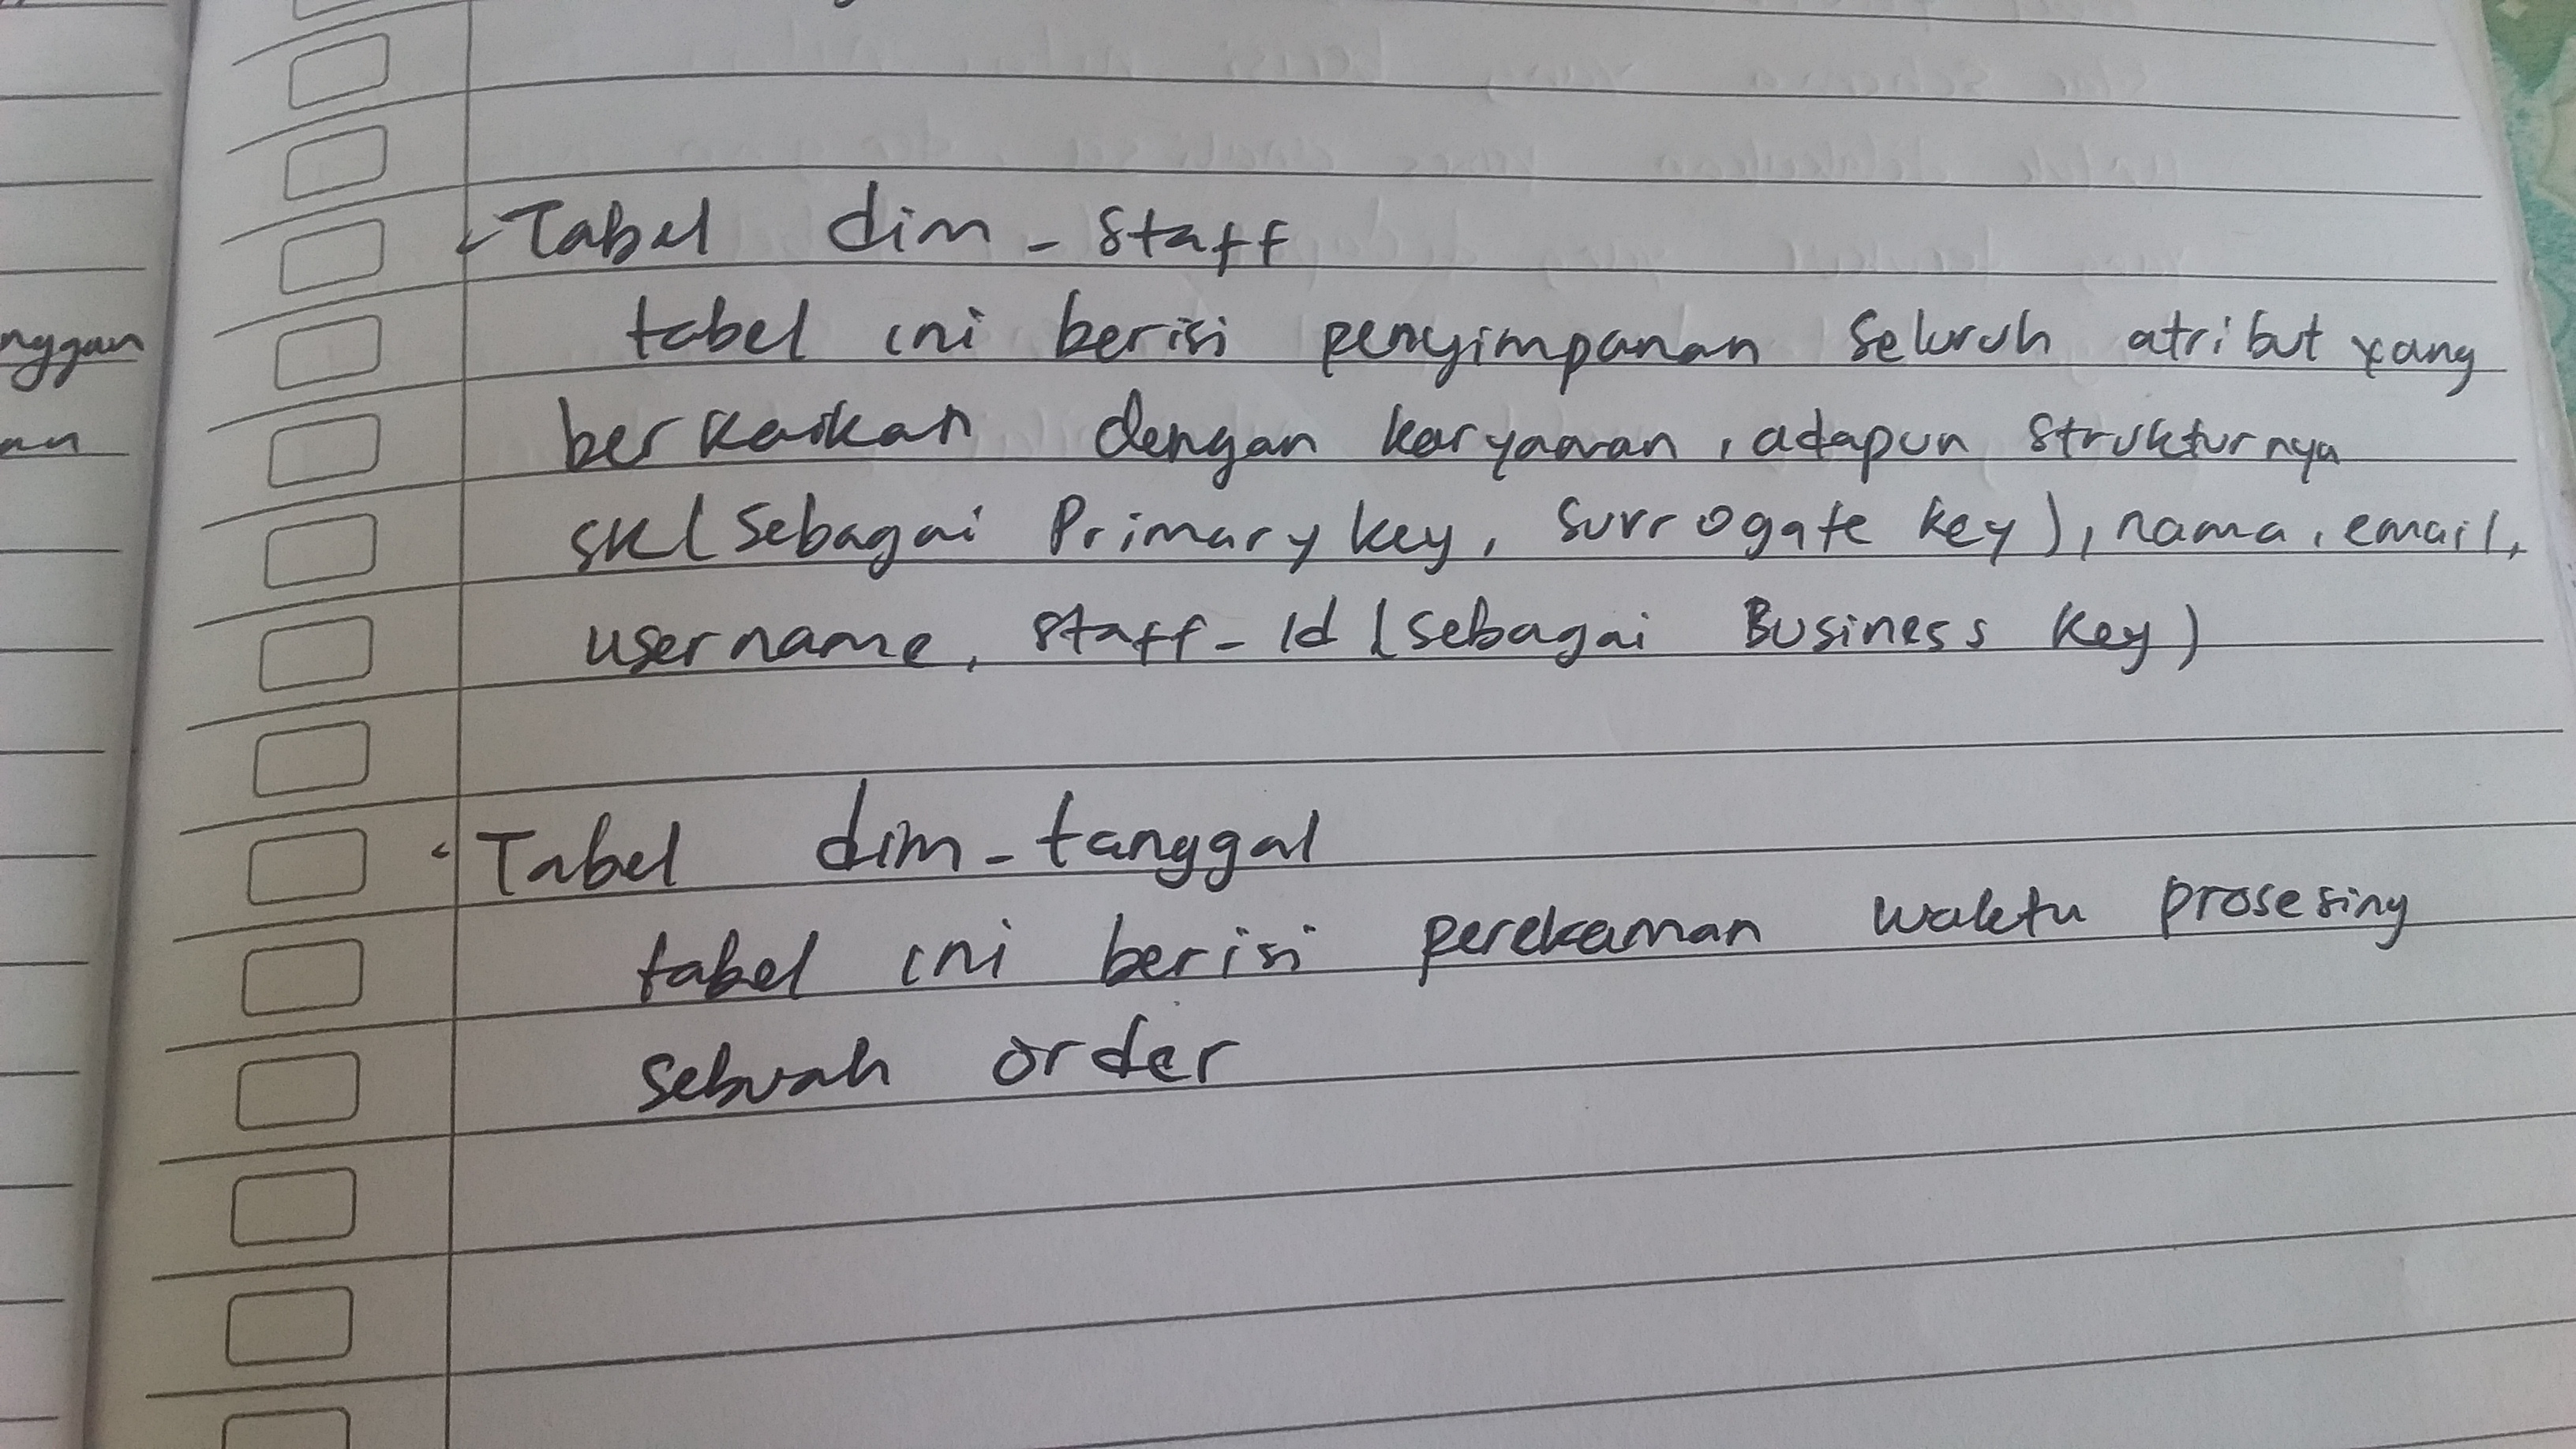 nggan
an
Tabel dim_staff
tabel ini berisi penyimpanan seluruh atribut yang
berkaikan dengan karyawan, adapun strukturnya
SK (sebagai Primary key, surrogate key), nama, email,
username, staff_Id (sebagai Business key)
Tabel dim_tanggal
tabel ini berisi perekaman waktu prosesing
sebuah order